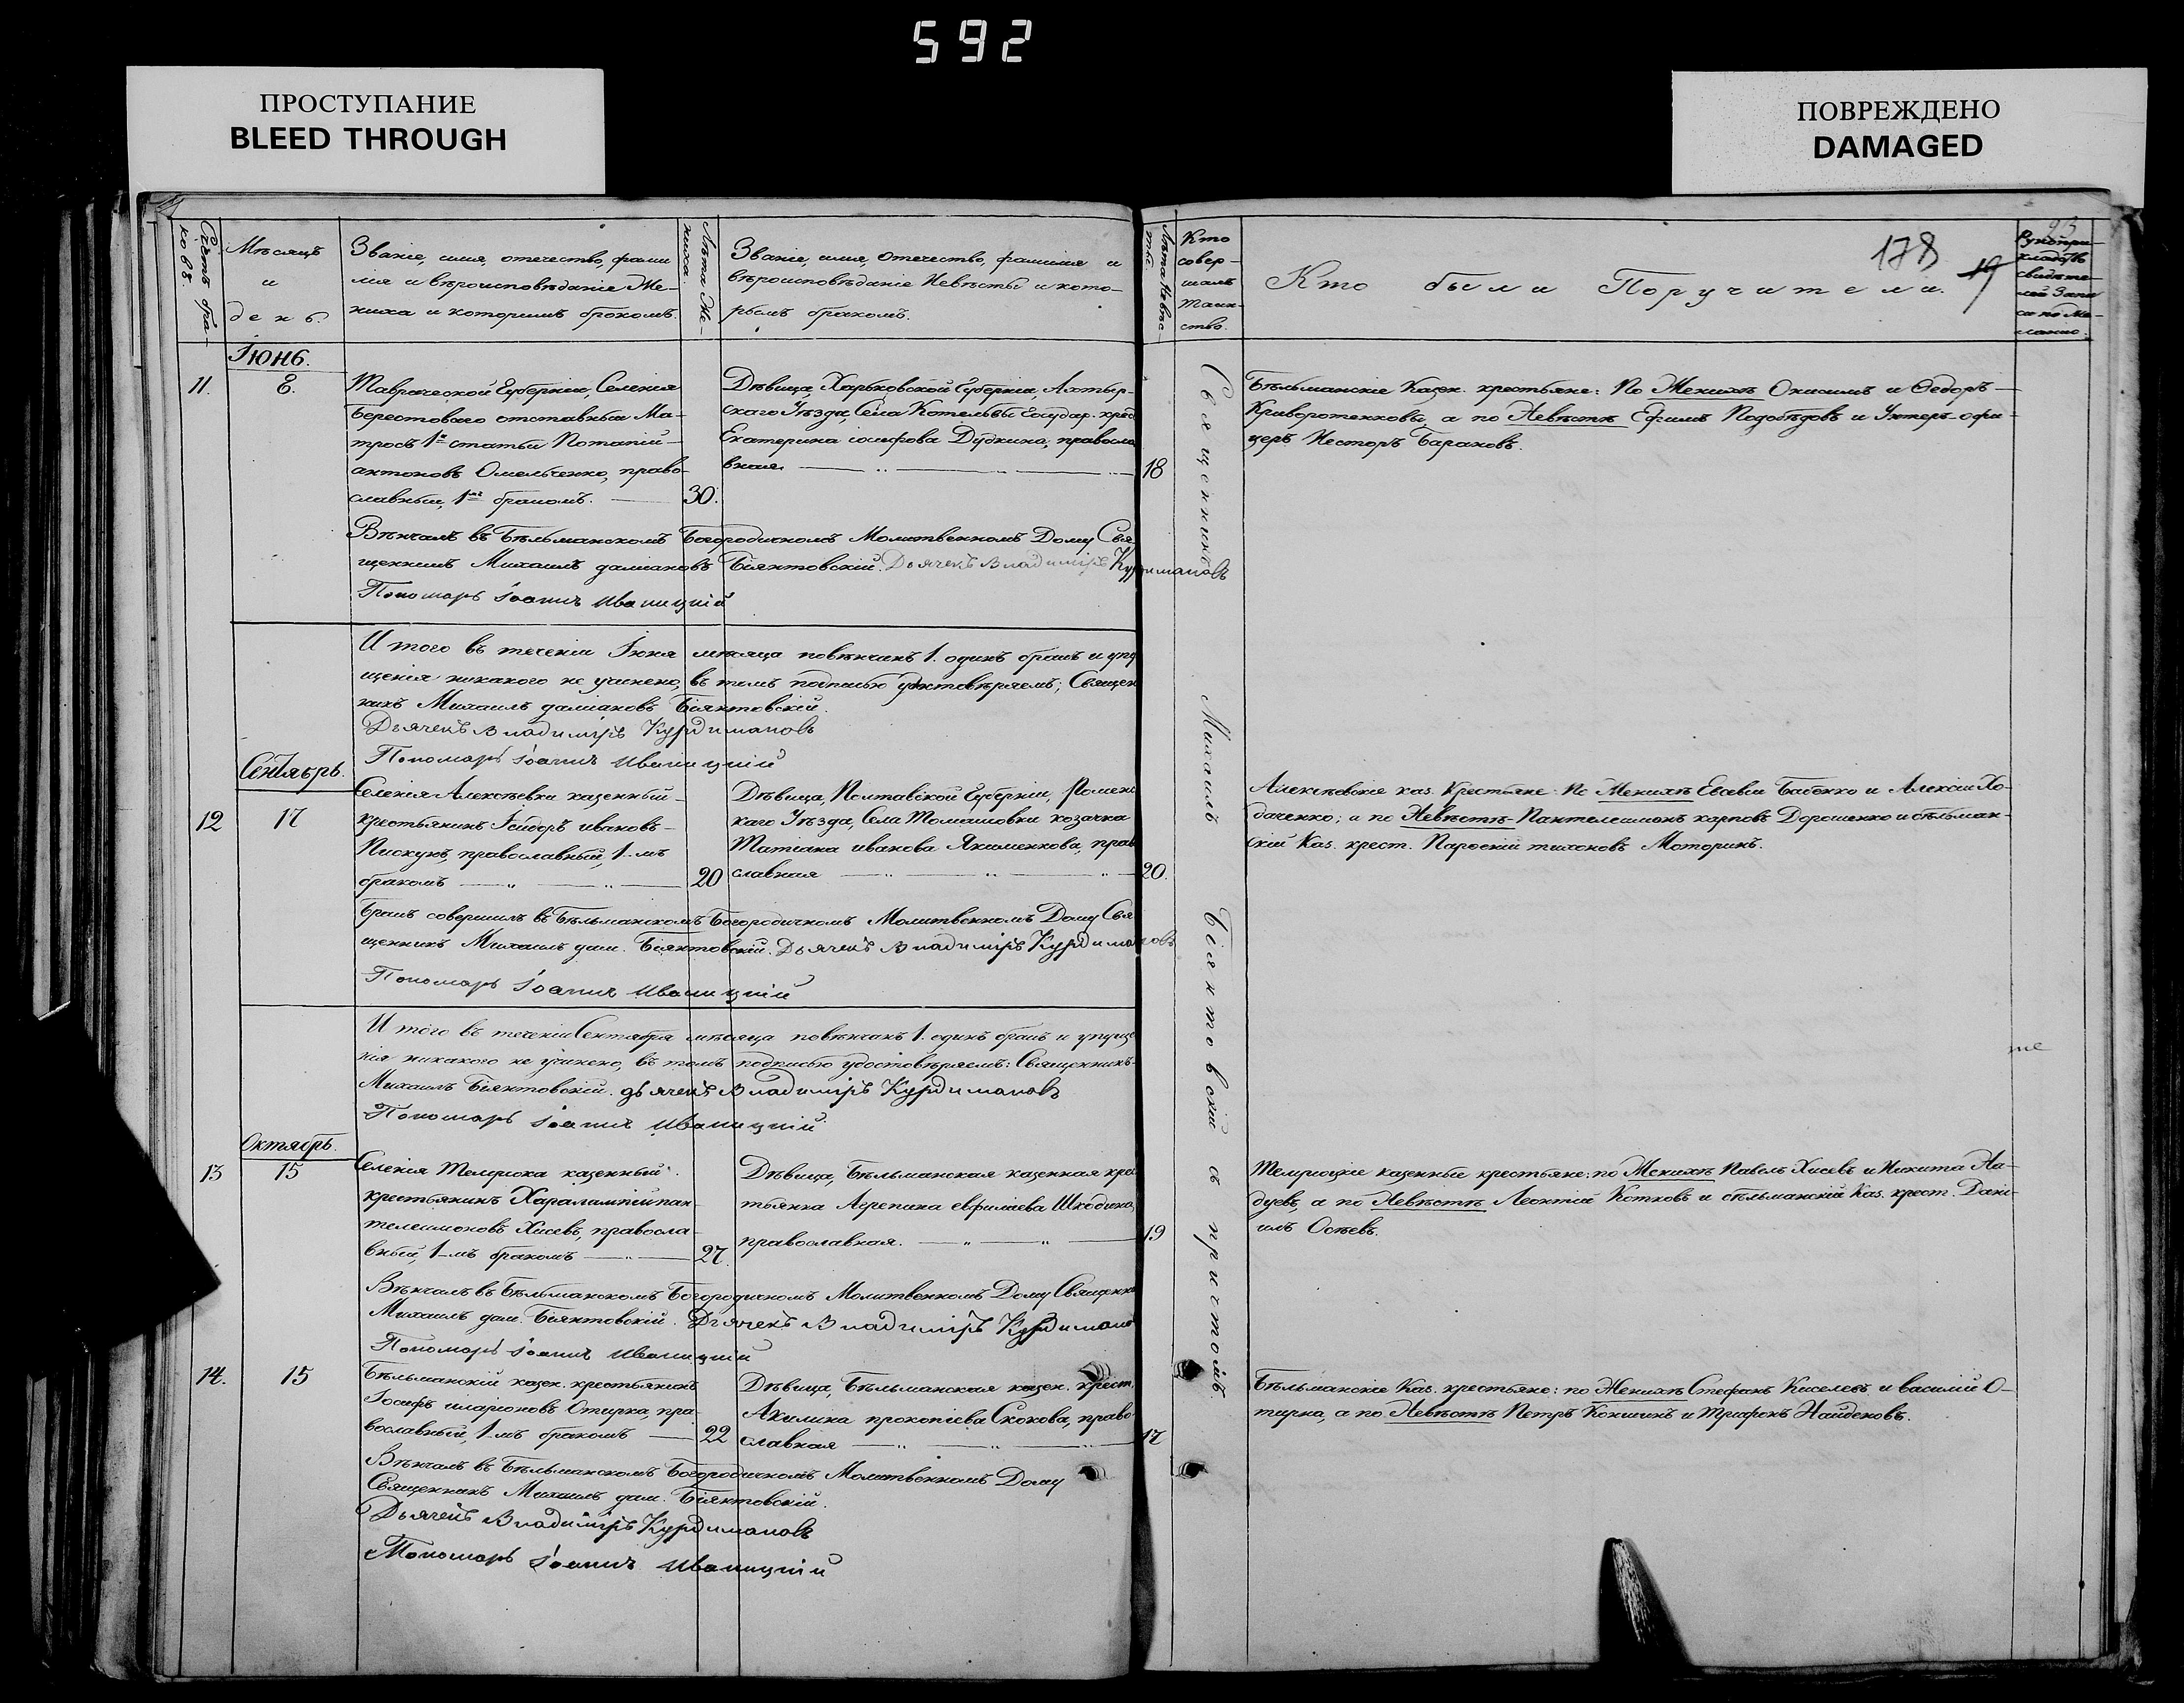 592
ПРОСТУПАНИЕ
BLEED THROUGH
ПОВРЕЖДЕНО
DAMAGED
Счетъ бра-
ковъ.
Мѣсяцъ
и
день.
Званіе, имя, отечество, фами
лія и вѣроисповѣданіе Же-
ниха и которымъ бракомъ.
Лѣта Же-
ниха.
Званіе, имя, отечество, фамилія и
вѣроисповѣданіе Невѣсты и кото-
рымъ бракомъ.
Лѣта Невѣс-
ты.
Кто
совер-
шалъ
Таин-
ство.
Кто были Поручители.
178
19
23
Рукопри-
кладств
свидѣте-
лей Запи
си по Же-
ланію.
Іюнь.
11.
8.
Таврической Губерніи, Селенія
Берестоваго отставный Ма-
тросъ 1й статьи Потапій
антоновъ Омельченко, право-
славный, 1мъ бракомъ.
30.
Дѣвица, Харьковской Губерніи, Ахтыр-
скаго Уѣзда, Села Котельвы Государ. крес
Екатерина іосифова Дудкина, правосла
вная.
18
Бѣльманскіе Казен. крестьяне: По Женихѣ Онисимъ и Ѳедоръ
Криворотенковы, а по Невѣстѣ Ефимъ Подобѣдовъ и Унтеръ-офи-
церъ Несторъ Барановъ.
Вѣнчалъ въ Бѣльманскомъ Богородичномъ Молитвенномъ Дому Свя
щенникъ Михаилъ даміановъ Біянтовскій. Дьячекъ Владиміръ Курдимановъ
Пономарь Іоаннъ Иваницкій
И того въ теченіи Іюня мѣсяца повѣнчанъ 1. одинъ бракъ и упу
щенія никакого не учинено, въ томъ подписью удостовѣряемъ; Священ
никъ Михаилъ даміановъ Біянтовскій.
Дьячекъ Владиміръ Курдимановъ
Пономарь Іоаннъ Иваницкій
Священникъ Михаилъ Біянтовскій съ причтомъ
Сентябрь.
12
17
Селенія Алексѣевки казенный
крестьянинъ Ісидоръ ивановъ
Пискунъ, православный, 1-мъ
бракомъ
20
Дѣвица, Полтавской Губерніи, Роменс
каго Уѣзда, Села Томашовки козачка
Татіана иванова Якименкова, прав
славная
20.
Алексѣевскіе каз. Крестьяне: По Женихѣ Евсевій Бабенко и Алексій Хо-
даченко; а по Невѣстѣ Пантелеимонъ карповъ Дорошенко и бѣльман-
скій Каз. крест. тихоновъ Моторинъ.
Бракъ совершилъ въ Бѣльманскомъ Богородичномъ Молитвенномъ Дому Свя
щенникъ Михаилъ дам. Біянтовскій. Дьячекъ Владиміръ Курдимановъ
Пономарь Іоаннъ Иваницкій
И того въ теченіи Сентября мѣсяца повѣнчанъ 1. одинъ бракъ и упуще
нія никакого не учинено, въ томъ подписью удостовѣряемъ: Священникъ
Михаилъ Біянтовскій. дьячекъ Владиміръ Курдимановъ
Пономарь Іоаннъ Иваницкій
Октябрь.
13
15
Селенія Темрюка казенный
крестьянинъ Харалампій пан-
телеимоновъ Хисевъ, правосла-
вный, 1-мъ бракомъ
27.
Дѣвица, Бѣльманская казенная крес
тьянка Агрепина евфиміева Шкодина,
православная.
19
Темрюцкіе казенные крестьяне: по Женихѣ Павелъ Хисевъ и Никита
а по Невѣстѣ Леонтій Котковъ и бѣльманскій Каз. крест. Дани-
илъ Осѣевъ.
Вѣнчалъ въ Бѣльманскомъ Богородичномъ Молитвенномъ Дому Священни
Михаилъ дам. Біянтовскій. Дьячекъ Владиміръ Курдиманов
Пономарь Іоаннъ Иваницкій
14.
15
Бѣльманскій казен. крестьянинъ
Іосифъ иларіоновъ Отирка, пра-
вославный, 1-мъ бракомъ
22
Дѣвица, Бѣльманская казен. крест.
Акилина прокопіева Скокова, право-
славная
17
Бѣльманскіе Каз. крестьяне: по Женихѣ Стефанъ Киселевъ и василій О-
тирка, а по Невѣстѣ Петръ Коншинъ и Трифонъ Найденовъ.
Вѣнчалъ въ Бѣльманскомъ Богородичномъ Молитвенномъ Дому
Священникъ Михаилъ дам. Біянтовскій.
Дьячекъ Владиміръ Курдимановъ
Пономарь Іоаннъ Иваницкій